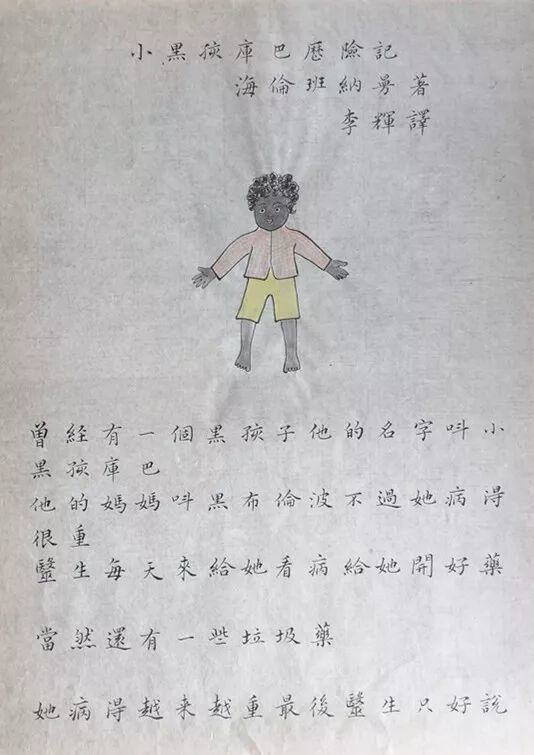 小黑孩庫巴歷險記
海倫班納曼著
李輝譯
曾経有一個黑孩子他的名字呌小
黑孩庫巴
他的媽媽呌黑布倫波不過她病得
很重
醫生每天來給她看病給她開好藥
當然還有一些垃圾藥
她病得越来越重最後醫生只好說